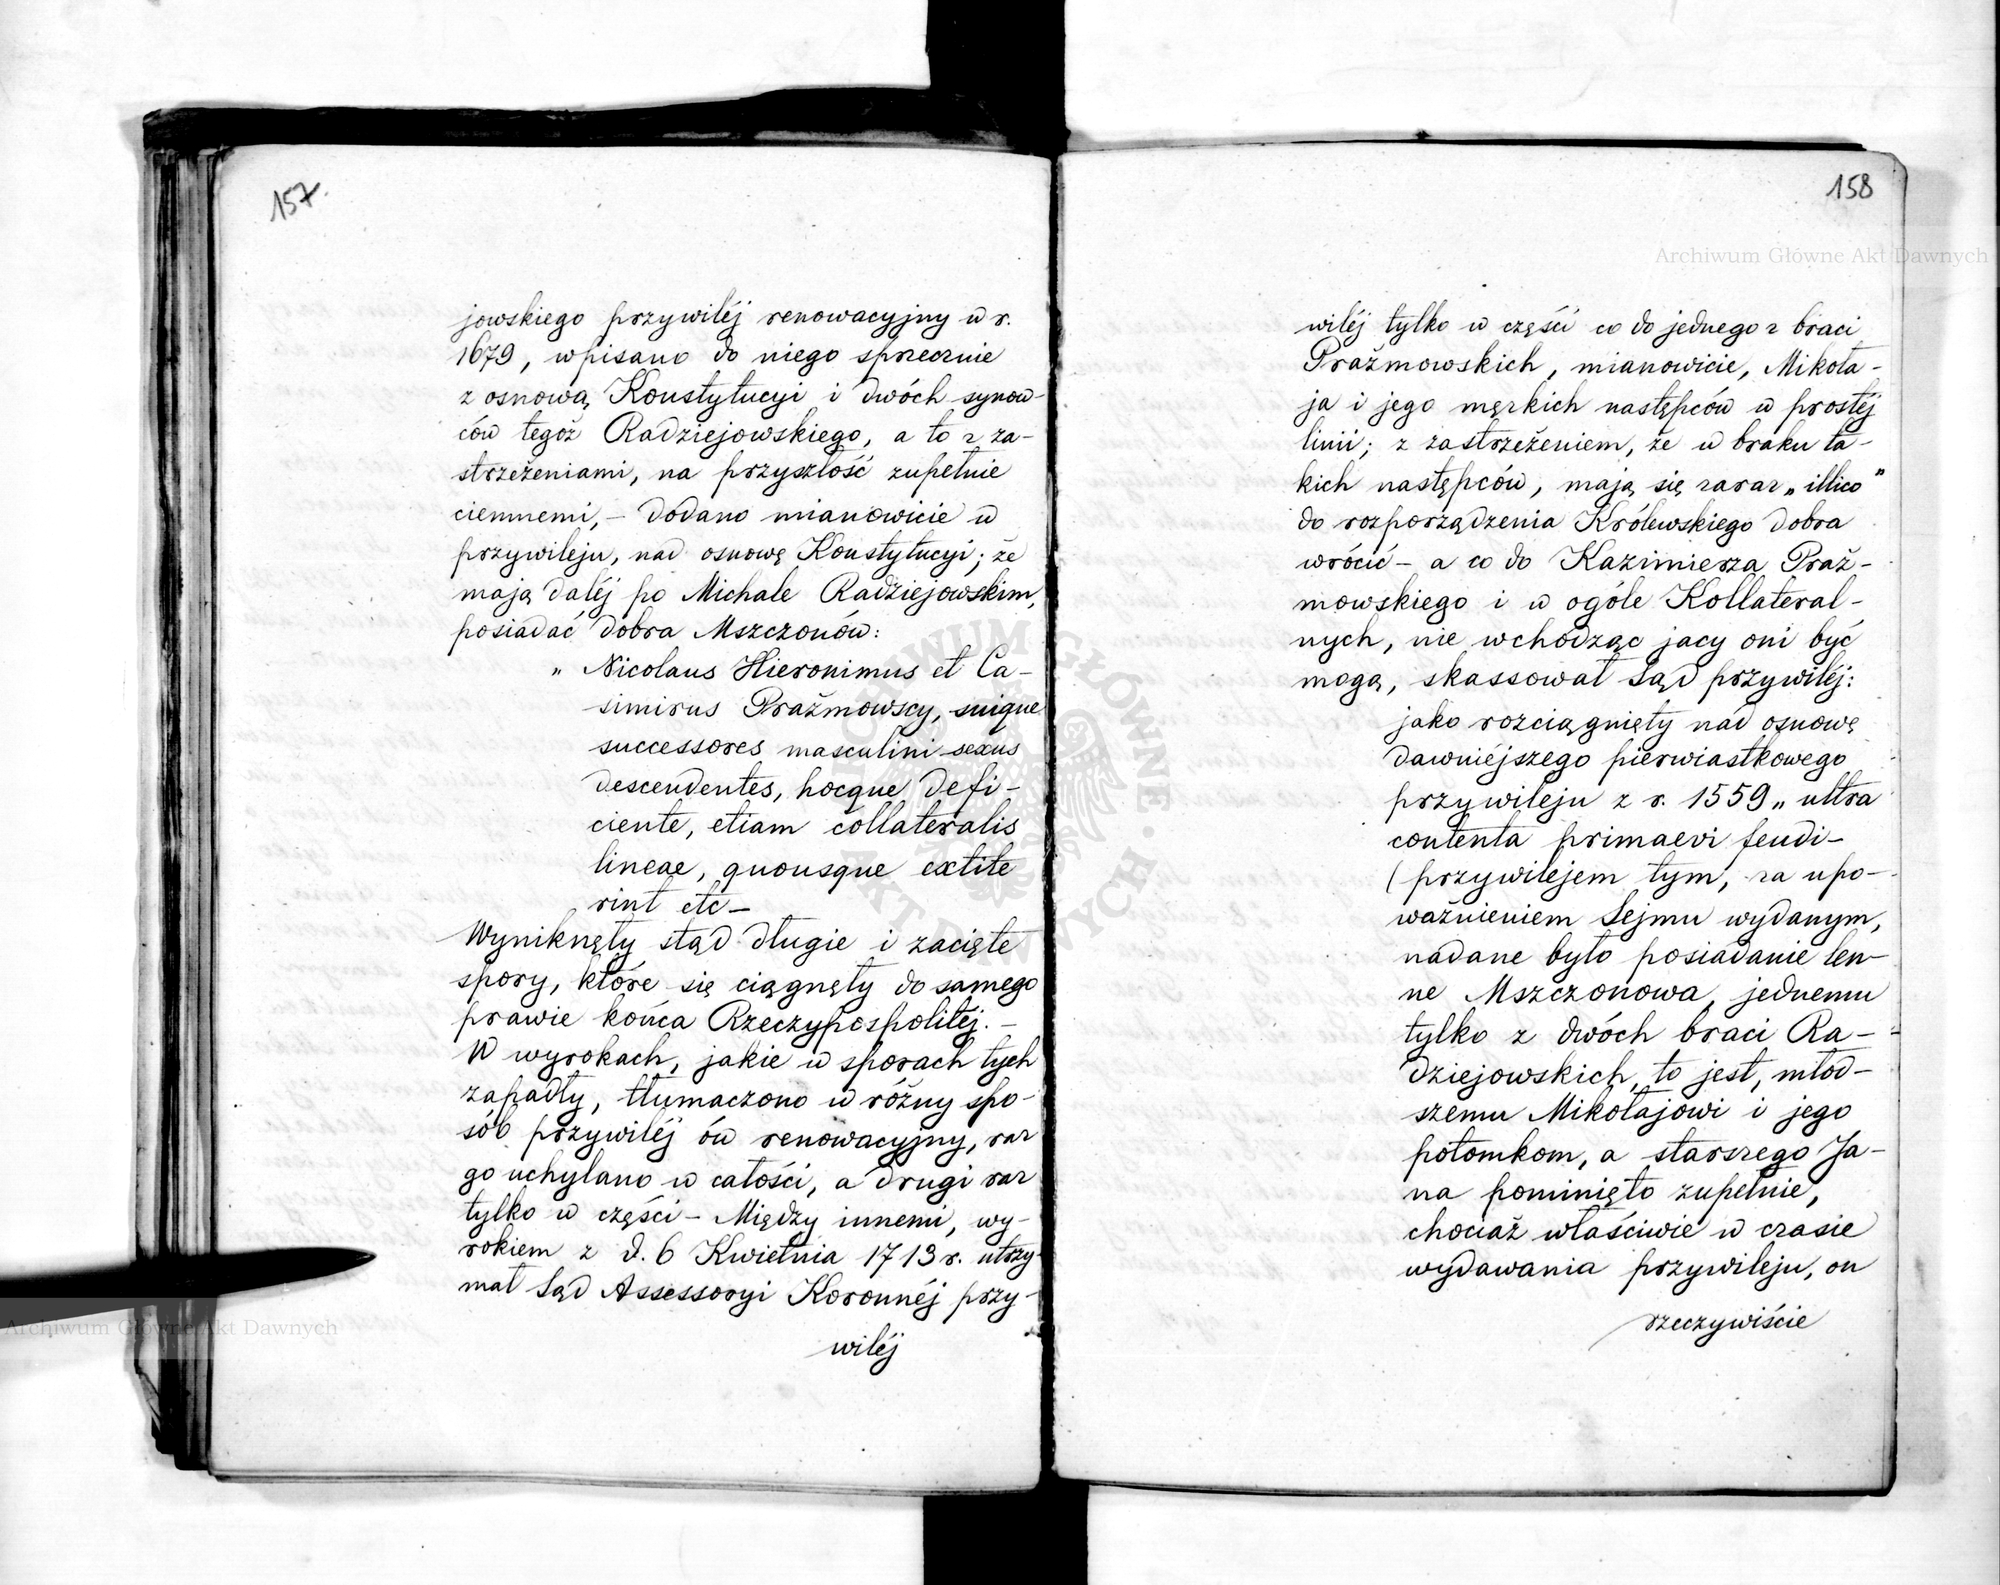 157.
jowskiego przywiléj renowacyjny w r.
1679, wpisano do niego sprzecznie
z osnową Konstytucyi i dwóch synow-
ców tegoż Radziejowskiego, a to z za-
strzeżeniami, na przyszłość zupełnie
ciemnemi, – dodano mianowicie w
przywileju, nad osnowę Konstytucyi; że
mają daléj po Michale Radziejowskim,
posiadać dobra Mszczonów:
„ Nicolaus Hieronimus et Ca-
simirus Prażmowscy, suique
successores masculini sexus
descendentes, hocque defi-
ciente, etiam collateralis
lineae, quousque extite
rint etc –
Wyniknęły stąd długie i zacięte
spory, które się ciągnęły do samego
prawie końca Rzeczypospolitéj. –
W wyrokach, jakie w sporach tych
zapadły, tłumaczono w różny spo-
sób przywiléj ów renowacyjny, raz
go uchylano w całości, a drugi raz
tylko w części – Między innemi, wy-
rokiem z d. 6 Kwietnia 1713 r. utrzy-
mał Sąd Assessoryi Koronnéj przy-
wiléj
158
wiléj tylko w części co do jednego z braci
Prażmowskich, mianowicie, Mikoła-
ja i jego męzkich następców w prostéj
linii; z zastrzeżeniem, że w braku ta-
kich następców, mają się zaraz „illico"
do rozporządzenia Królewskiego dobra
wrócić – a co do Kazimierza Praż-
mowskiego i w ogóle Kollateral-
nych, nie wchodząc jacy oni być
mogą, skassował Sąd przywiléj:
jako rozciągnięty nad osnowę
dawniéjszego pierwiastkowego
przywileju z r. 1559 „ ultra
contenta primaevi feudi –
(przywilejem tym, za upo-
ważnieniem Sejmu wydanym,
nadane było posiadanie len-
ne Mszczonowa, jednemu
tylko z dwóch braci Ra-
dziejowskich, to jest, młod-
szemu Mikołajowi i jego
potomkom, a starszego Ja-
na pominięto zupełnie,
chociaż właściwie w czasie
wydawania przywileju, on
rzeczywiście
Archiwum Główne Akt Dawnych
Archiwum Główne Akt Dawnych
ARCHIWUM GŁÓWNE AKT DAWNYCH